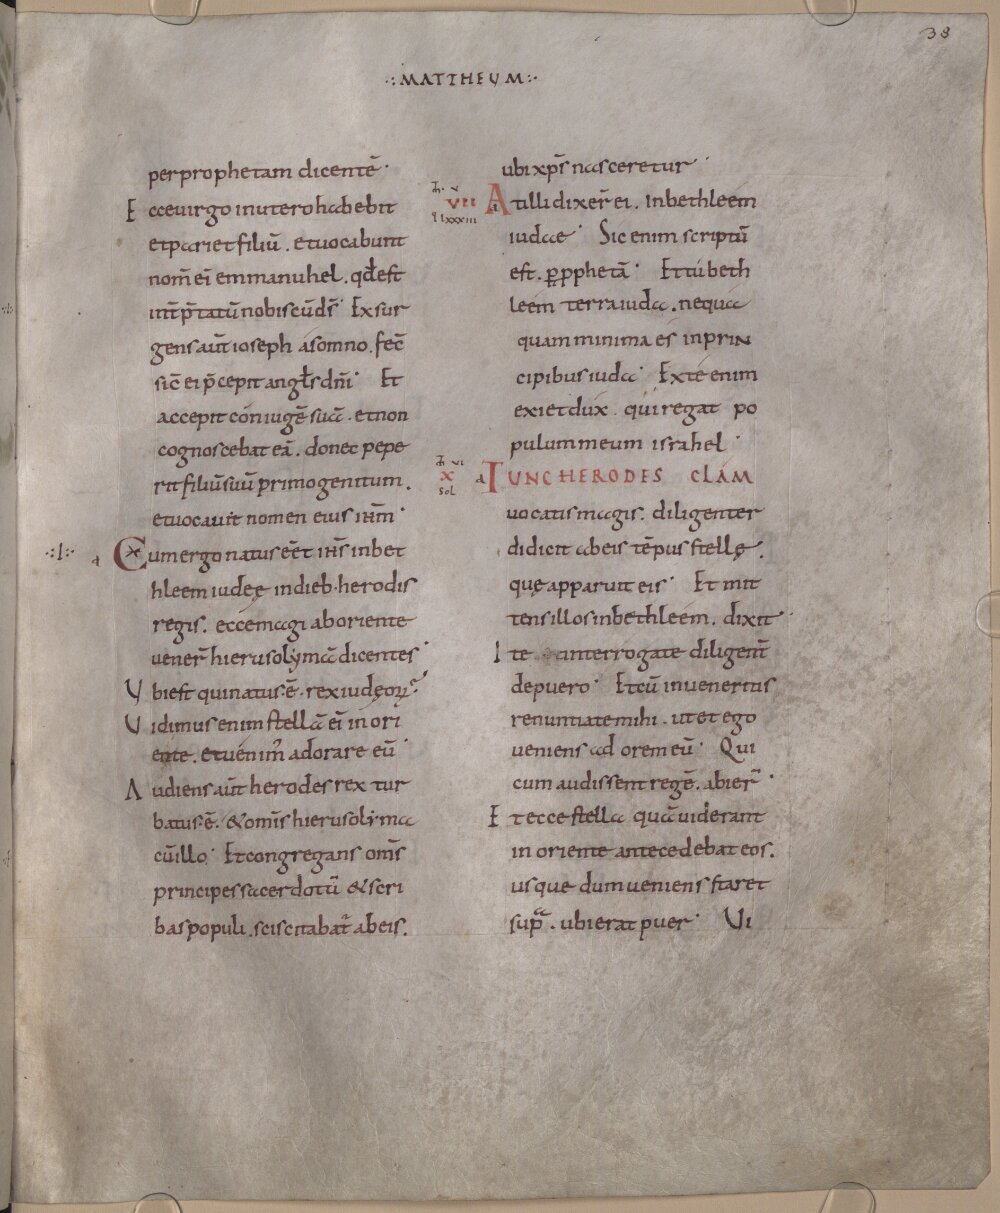 38
·:MATTHEUM:·
per prophetam dicentē·
Ecce uirgo in utero habebit
et pariet filiū. et uocabunt
nom̄ ei emmanuhel. qđ est
int̄p̄tatū nobiscū d̄s· Exsur
gens aūt ioseph a somno. fec̄
sic̄ ei p̄cepit angl̄s dn̄i· Et
accepit coniugē suā. et non
cognoscebat eā. donec pepe
rit filiū suū primogenitum.
et uocauit nomen eius ihm̄·
·:I:·
a
Cum ergo natus eēt ihs̄ in bet
hleem iudeę in dieb· herodis
regis. ecce magi ab oriente
uener̄ hierusolymā dicentes·
Ubi est qui natus·ē· rex iudęoꝝ
Uidimus enim stellā ei in ori
ente. et uenim̄ adorare eū·
Audiens aūt herodes rex tur
batus·ē. & omīs hierusolima
cū illo· Et congregans om̄s
principes sacerdotū & scri
bas populi. sciscitabat᷑ ab eis.
ubi xp̄s nasceretur·
VII
a
At illi dixer̄ ei. In bethleem
iudae· Sic enim scriptū
est. ꝑ ꝓphetā· Et tu beth
leem terra iuda. nequa
quam minima es in prin
cipibus iuda· Ex te enim
exiet dux. qui regat po
pulum meum israhel·
X
a
TUNC HERODES CLAM
uocatis magis. diligenter
didicit ab eis tēpus stellę.
quę apparuit eis· Et mit
tens illos in bethleem. dixit·
Ite interrogate diligent̄
de puero· Et cū inueneritis
renuntiate mihi. ut et ego
ueniens adorem eū· Qui
cum audissent regē. abier̄·
Et ecce stella quā uiderant
in oriente antecedebat eos.
usque dum ueniens staret
supra. ubi erat puer· Ui